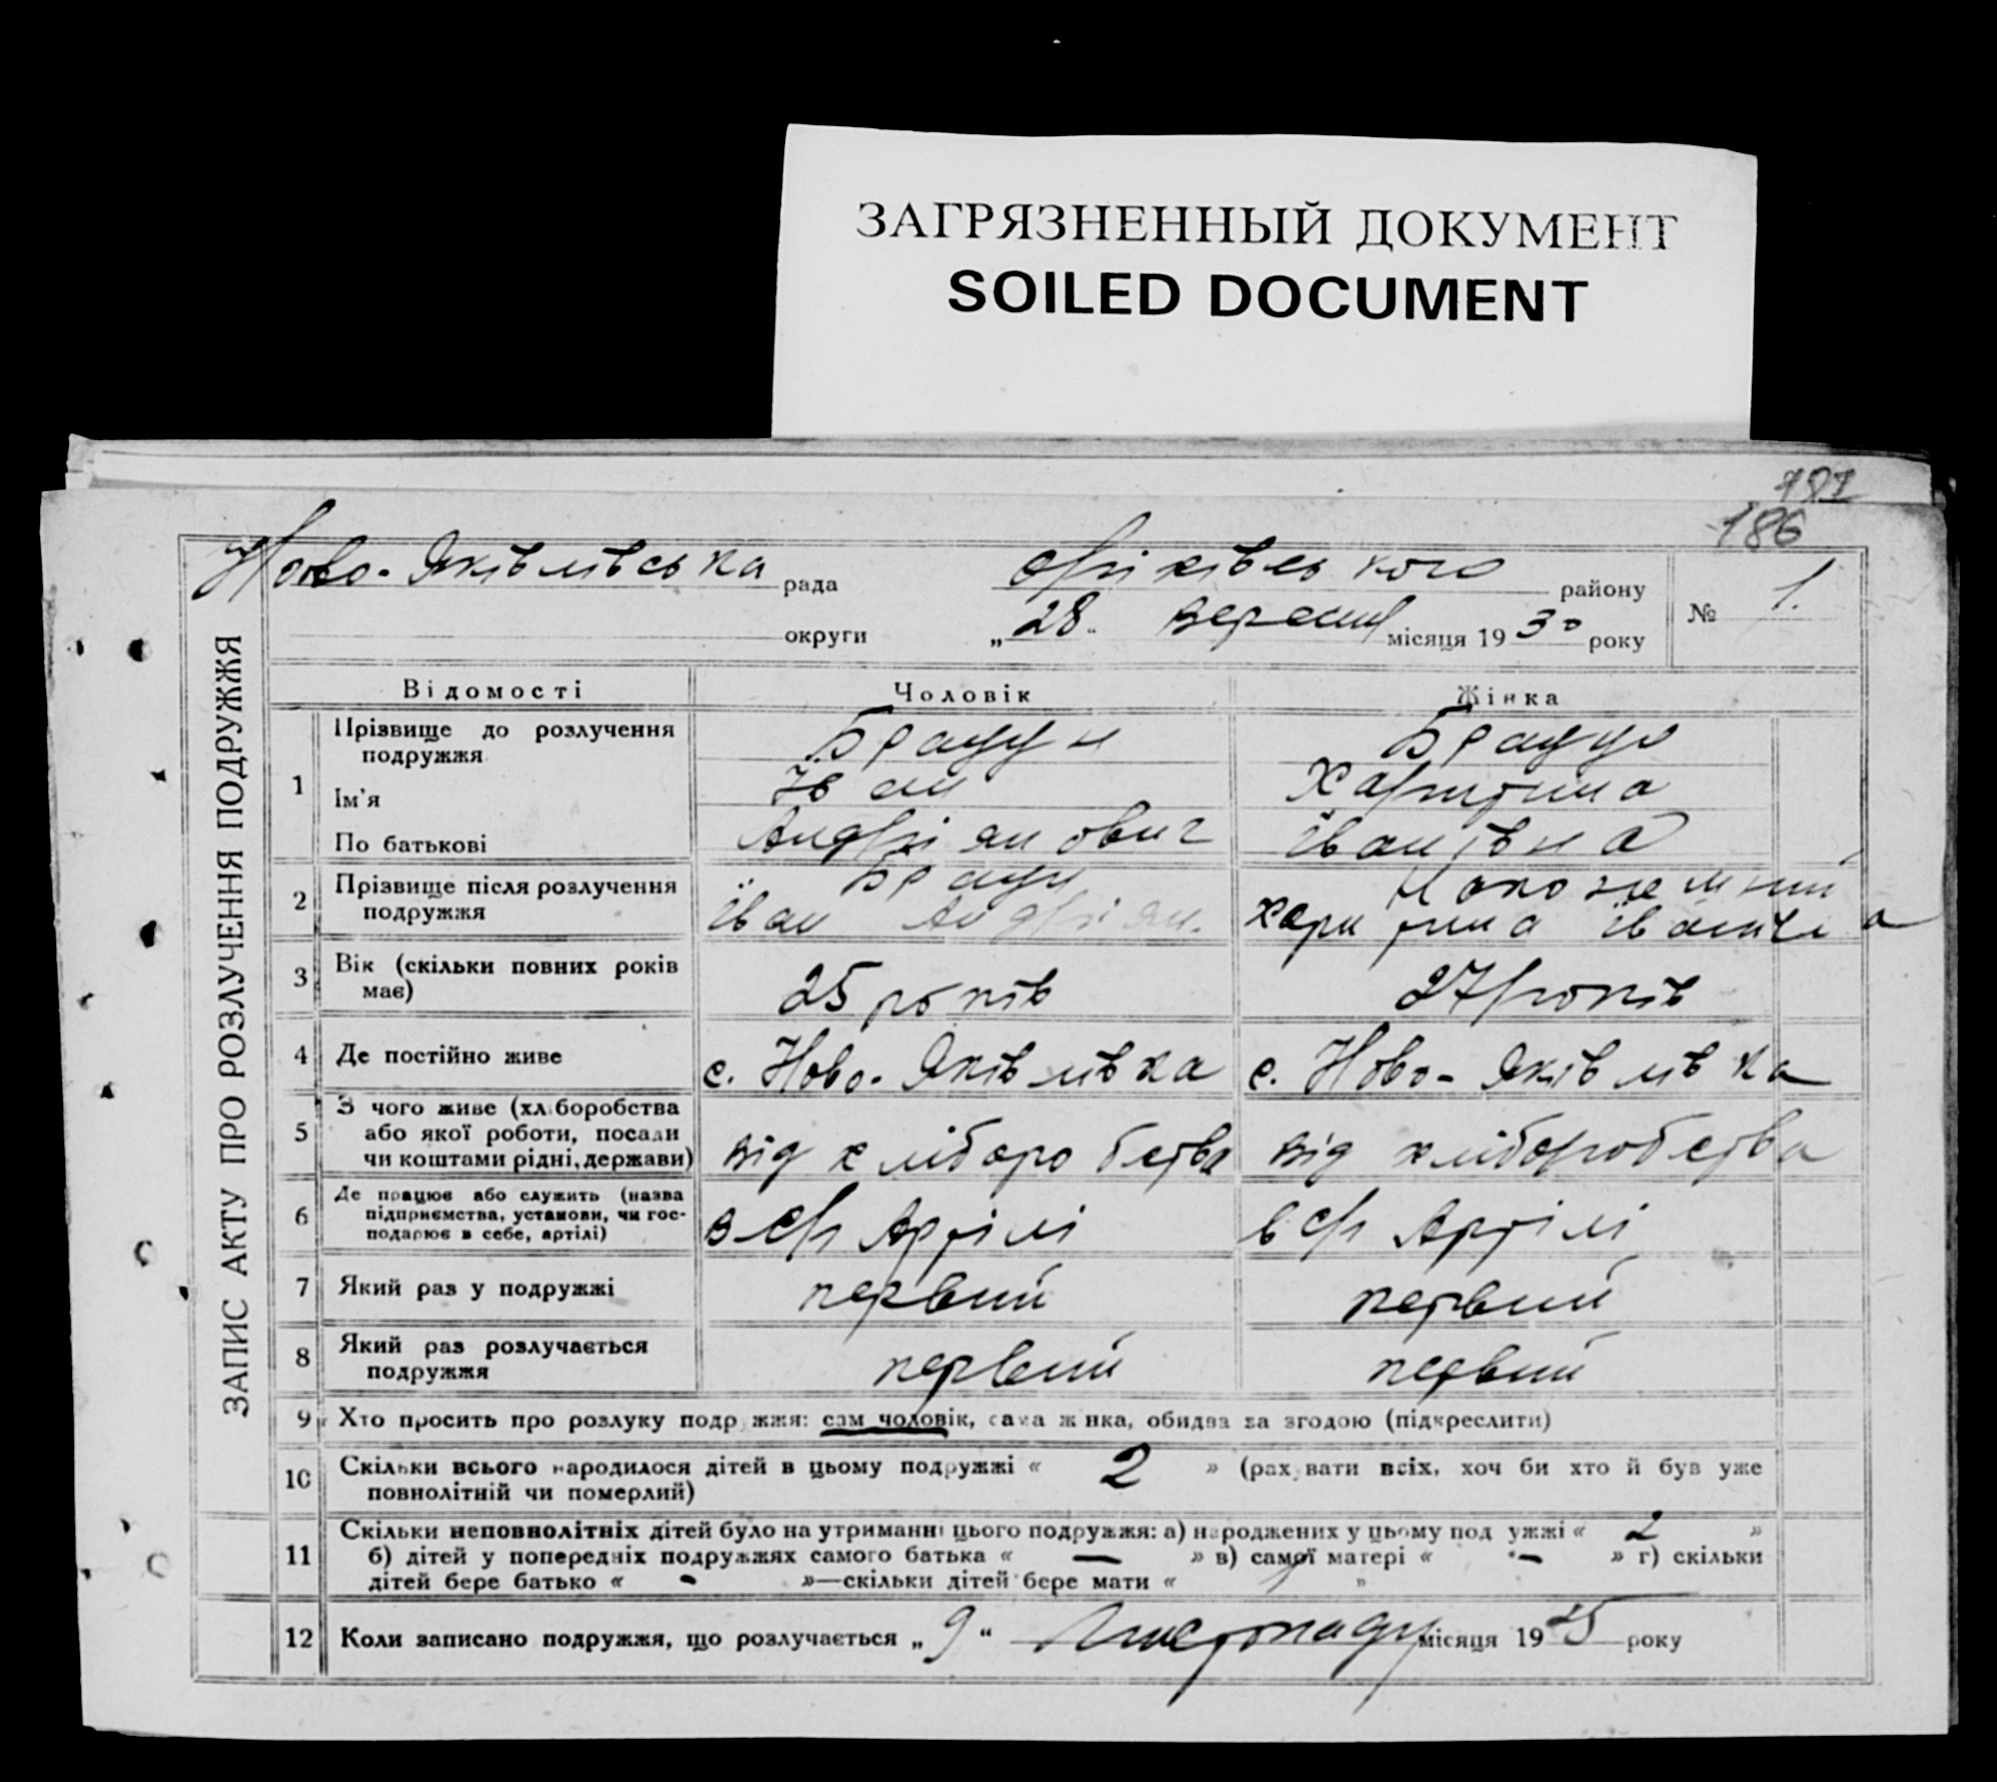 ЗАГРЯЗНЕННЫЙ ДОКУМЕНТ
SOILED DOCUMENT
186
Ново-Яківлівська рада Оріхівського району № 1.
округи „28" вересня місяця 1930 року
ЗАПИС АКТУ ПРО РОЗЛУЧЕННЯ ПОДРУЖЖЯ
Відомості Чоловік Жінка
1 Прізвище до розлучення подружжя
Ім'я Іван Харитина
По батькові Андріянович Іванівна
2 Прізвище після розлучення
подружжя Іван Андріян. Харитина
3 Вік (скільки повних років
має) 25 років 27 років
4 Де постійно живе с. Ново-Яківлівка с. Ново-Яківлівка
5 З чого живе (хліборобства
або якої роботи, посади
чи коштами рідні, держави) від хліборобства від хліборобства
6 Де працює або служить (назва
підприємства, установи, чи гос-
подарює в себе, артілі) в с/г Артілі в с/г Артілі
7 Який раз у подружжі первий первий
8 Який раз розлучається
подружжя первий первий
9 Хто просить про розлуку подружжя: сам чоловік, сама жінка, обидва за згодою (підкреслити)
10 Скільки всього народилося дітей в цьому подружжі « 2 » (рахувати всіх, хоч би хто й був уже
повнолітній чи померлий)
11 Скільки неповнолітніх дітей було на утриманні цього подружжя: а) народжених у цьому подружжі « 2 »
б) дітей у попередніх подружжях самого батька « — » в) самої матері « — » г) скільки
дітей бере батько « - »—скільки дітей бере мати « »
12 Коли записано подружжя, що розлучається „9" Листопаду місяця 1925 року